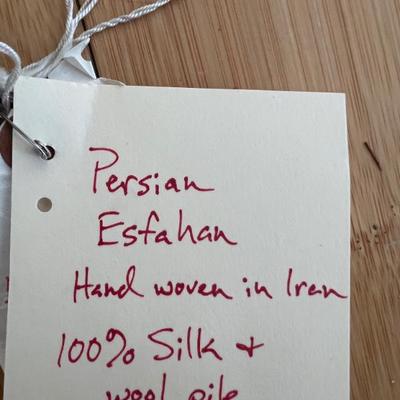 Persian
Esfahan
Hand woven in Iran
100% Silk +
wool pile